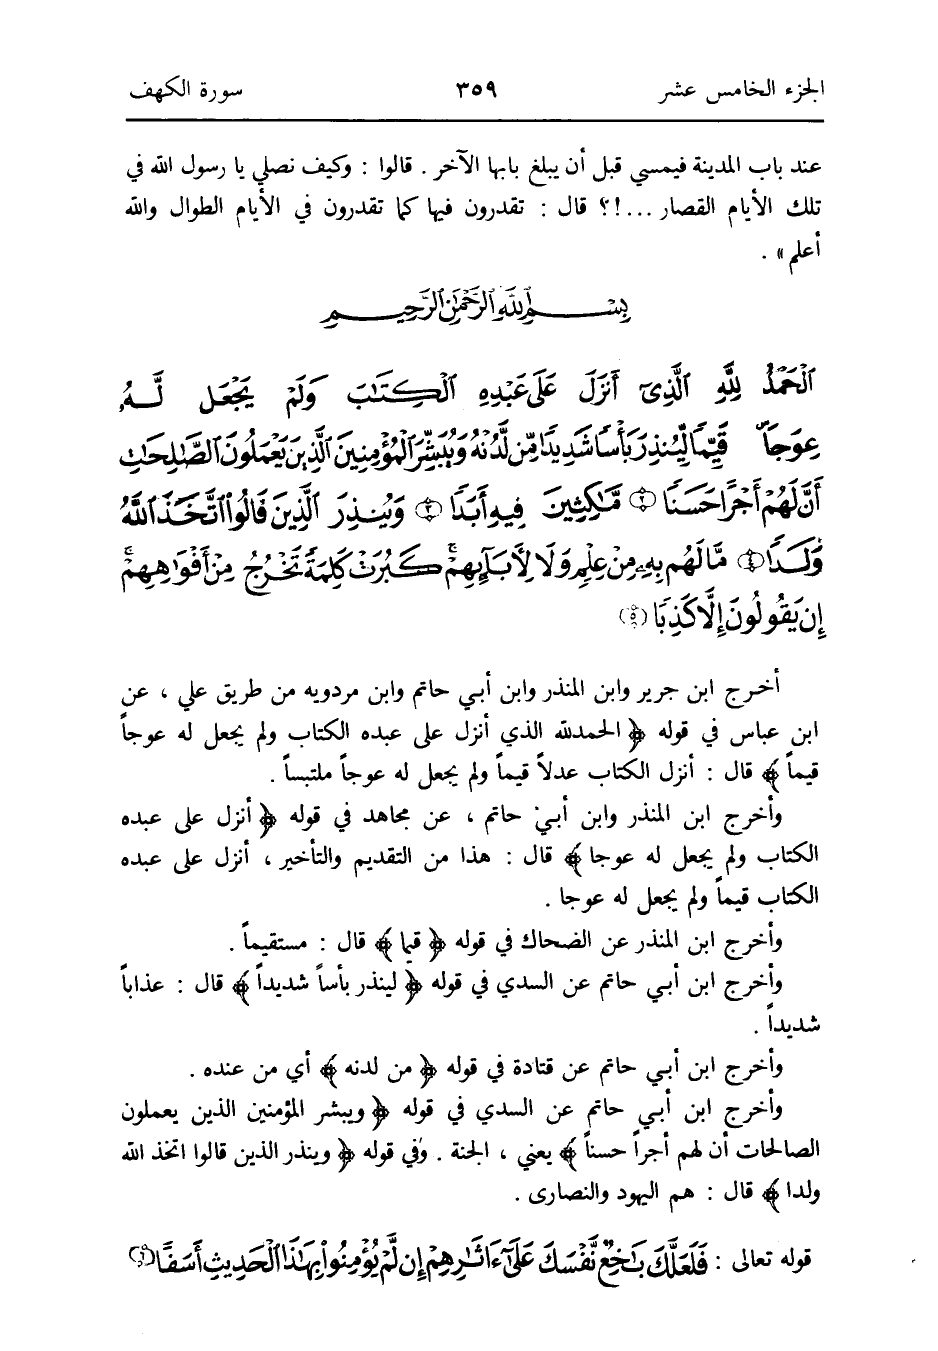 الجزء الخامس عشر ٣٥٩ سورة الكهف
عند باب المدينة فيمسي قبل أن يبلغ بابها الآخر . قالوا : وكيف نصلي يا رسول الله في
تلك الأيام القصار ...!؟ قال : تقدرون فيها كما تقدرون في الأيام الطوال والله
أعلم » .
بِسْمِ ٱللَّهِ ٱلرَّحْمَٰنِ ٱلرَّحِيمِ
ٱلْحَمْدُ لِلَّهِ ٱلَّذِىٓ أَنزَلَ عَلَىٰ عَبْدِهِ ٱلْكِتَٰبَ وَلَمْ يَجْعَل لَّهُۥ
عِوَجَاۜ قَيِّمًا لِّيُنذِرَ بَأْسًا شَدِيدًا مِّن لَّدُنْهُ وَيُبَشِّرَ ٱلْمُؤْمِنِينَ ٱلَّذِينَ يَعْمَلُونَ ٱلصَّٰلِحَٰتِ
أَنَّ لَهُمْ أَجْرًا حَسَنًا ﴿٢﴾ مَّٰكِثِينَ فِيهِ أَبَدًا ﴿٣﴾ وَيُنذِرَ ٱلَّذِينَ قَالُوا۟ ٱتَّخَذَ ٱللَّهُ
وَلَدًا ﴿٤﴾ مَّا لَهُم بِهِۦ مِنْ عِلْمٍ وَلَا لِأَبَآئِهِمْ ۚ كَبُرَتْ كَلِمَةً تَخْرُجُ مِنْ أَفْوَٰهِهِمْ ۚ
إِن يَقُولُونَ إِلَّا كَذِبًا ﴿٥﴾
أخرج ابن جرير وابن المنذر وابن أبي حاتم وابن مردويه من طريق علي ، عن
ابن عباس في قوله ﴿ الحمدلله الذي أنزل على عبده الكتاب ولم يجعل له عوجاً
قيماً ﴾ قال : أنزل الكتاب عدلاً قيماً ولم يجعل له عوجاً ملتبساً .
وأخرج ابن المنذر وابن أبي حاتم ، عن مجاهد في قوله ﴿ أنزل على عبده
الكتاب ولم يجعل له عوجا ﴾ قال : هذا من التقديم والتأخير ، أنزل على عبده
الكتاب قيماً ولم يجعل له عوجا .
وأخرج ابن المنذر عن الضحاك في قوله ﴿ قيما ﴾ قال : مستقيماً .
وأخرج ابن أبي حاتم عن السدي في قوله ﴿ لينذر بأساً شديداً ﴾ قال : عذاباً
شديداً .
وأخرج ابن أبي حاتم عن قتادة في قوله ﴿ من لدنه ﴾ أي من عنده .
وأخرج ابن أبي حاتم عن السدي في قوله ﴿ ويبشر المؤمنين الذين يعملون
الصالحات أن لهم أجراً حسناً ﴾ يعني ، الجنة . وفي قوله ﴿ وينذر الذين قالوا اتخذ الله
ولدا ﴾ قال : هم اليهود والنصارى .
قوله تعالى : فَلَعَلَّكَ بَٰخِعٌ نَّفْسَكَ عَلَىٰٓ ءَاثَٰرِهِمْ إِن لَّمْ يُؤْمِنُوا۟ بِهَٰذَا ٱلْحَدِيثِ أَسَفًا ﴿٦﴾